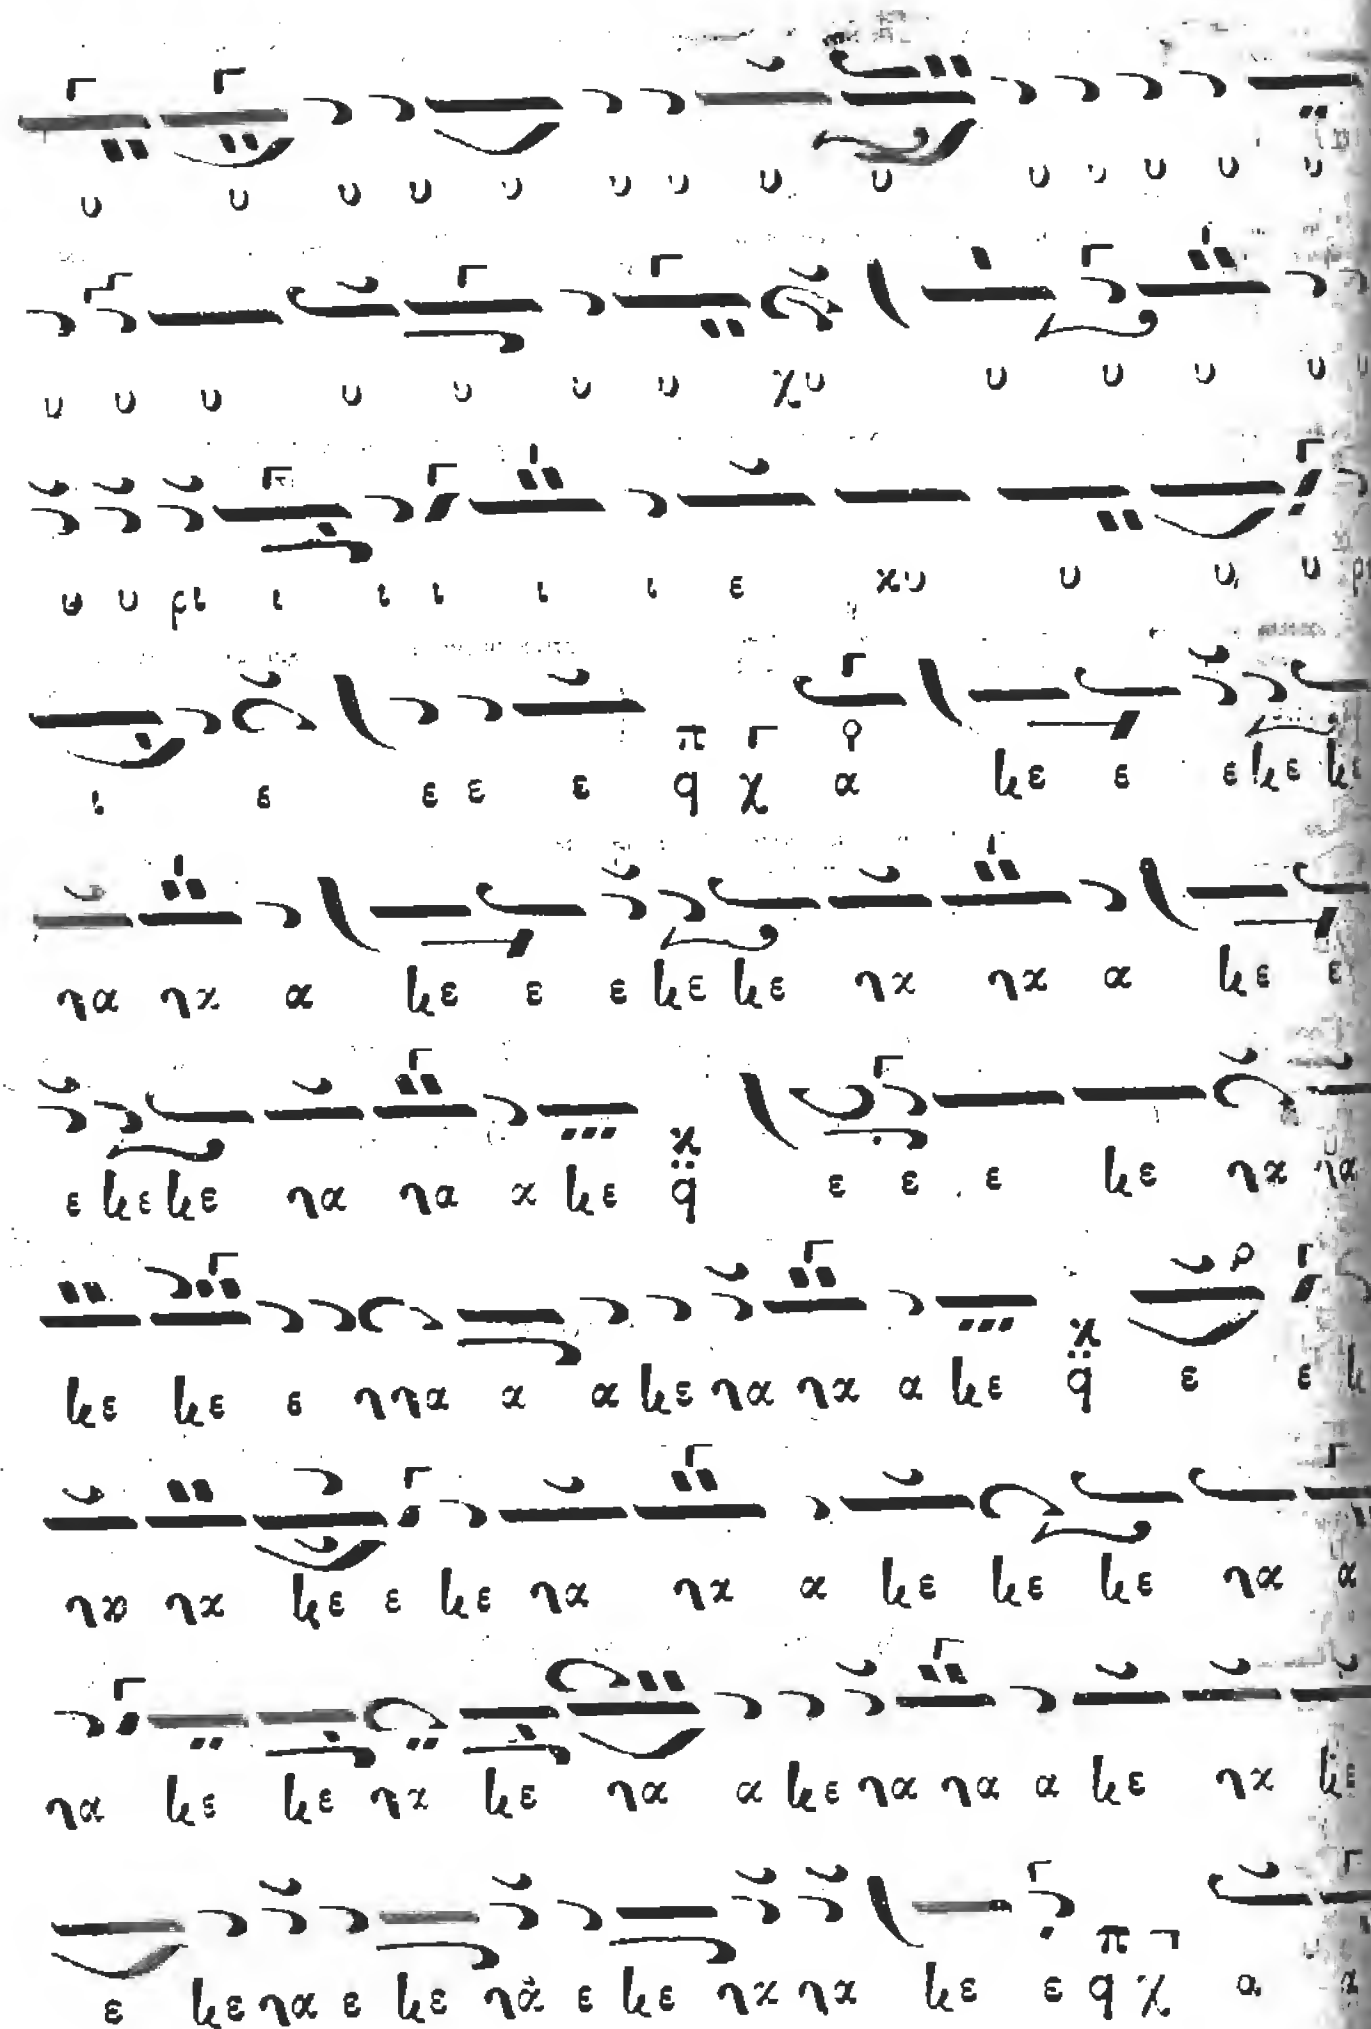 υ υ υ υ υ υ υ υ υ υ υ υ υ υ
υ υ υ υ υ υ υ χυ υ υ υ υ
υ υ ρι ι ι ι ι ι ε κυ υ υ υ
ι ε ε ε ε π q Γ χ α λε ε ε λε λε
να να α λε ε ε λε λε να να α λε ε
ε λε λε να να α λε χ q ε ε ε λε να να
λε λε ε ννα α α λε να να α λε χ q ε ε
να να λε ε λε να να α λε λε λε να α
να λε λε να λε να α λε να να α λε να λε
ε λε να ε λε να ε λε να να λε ε π q χ α